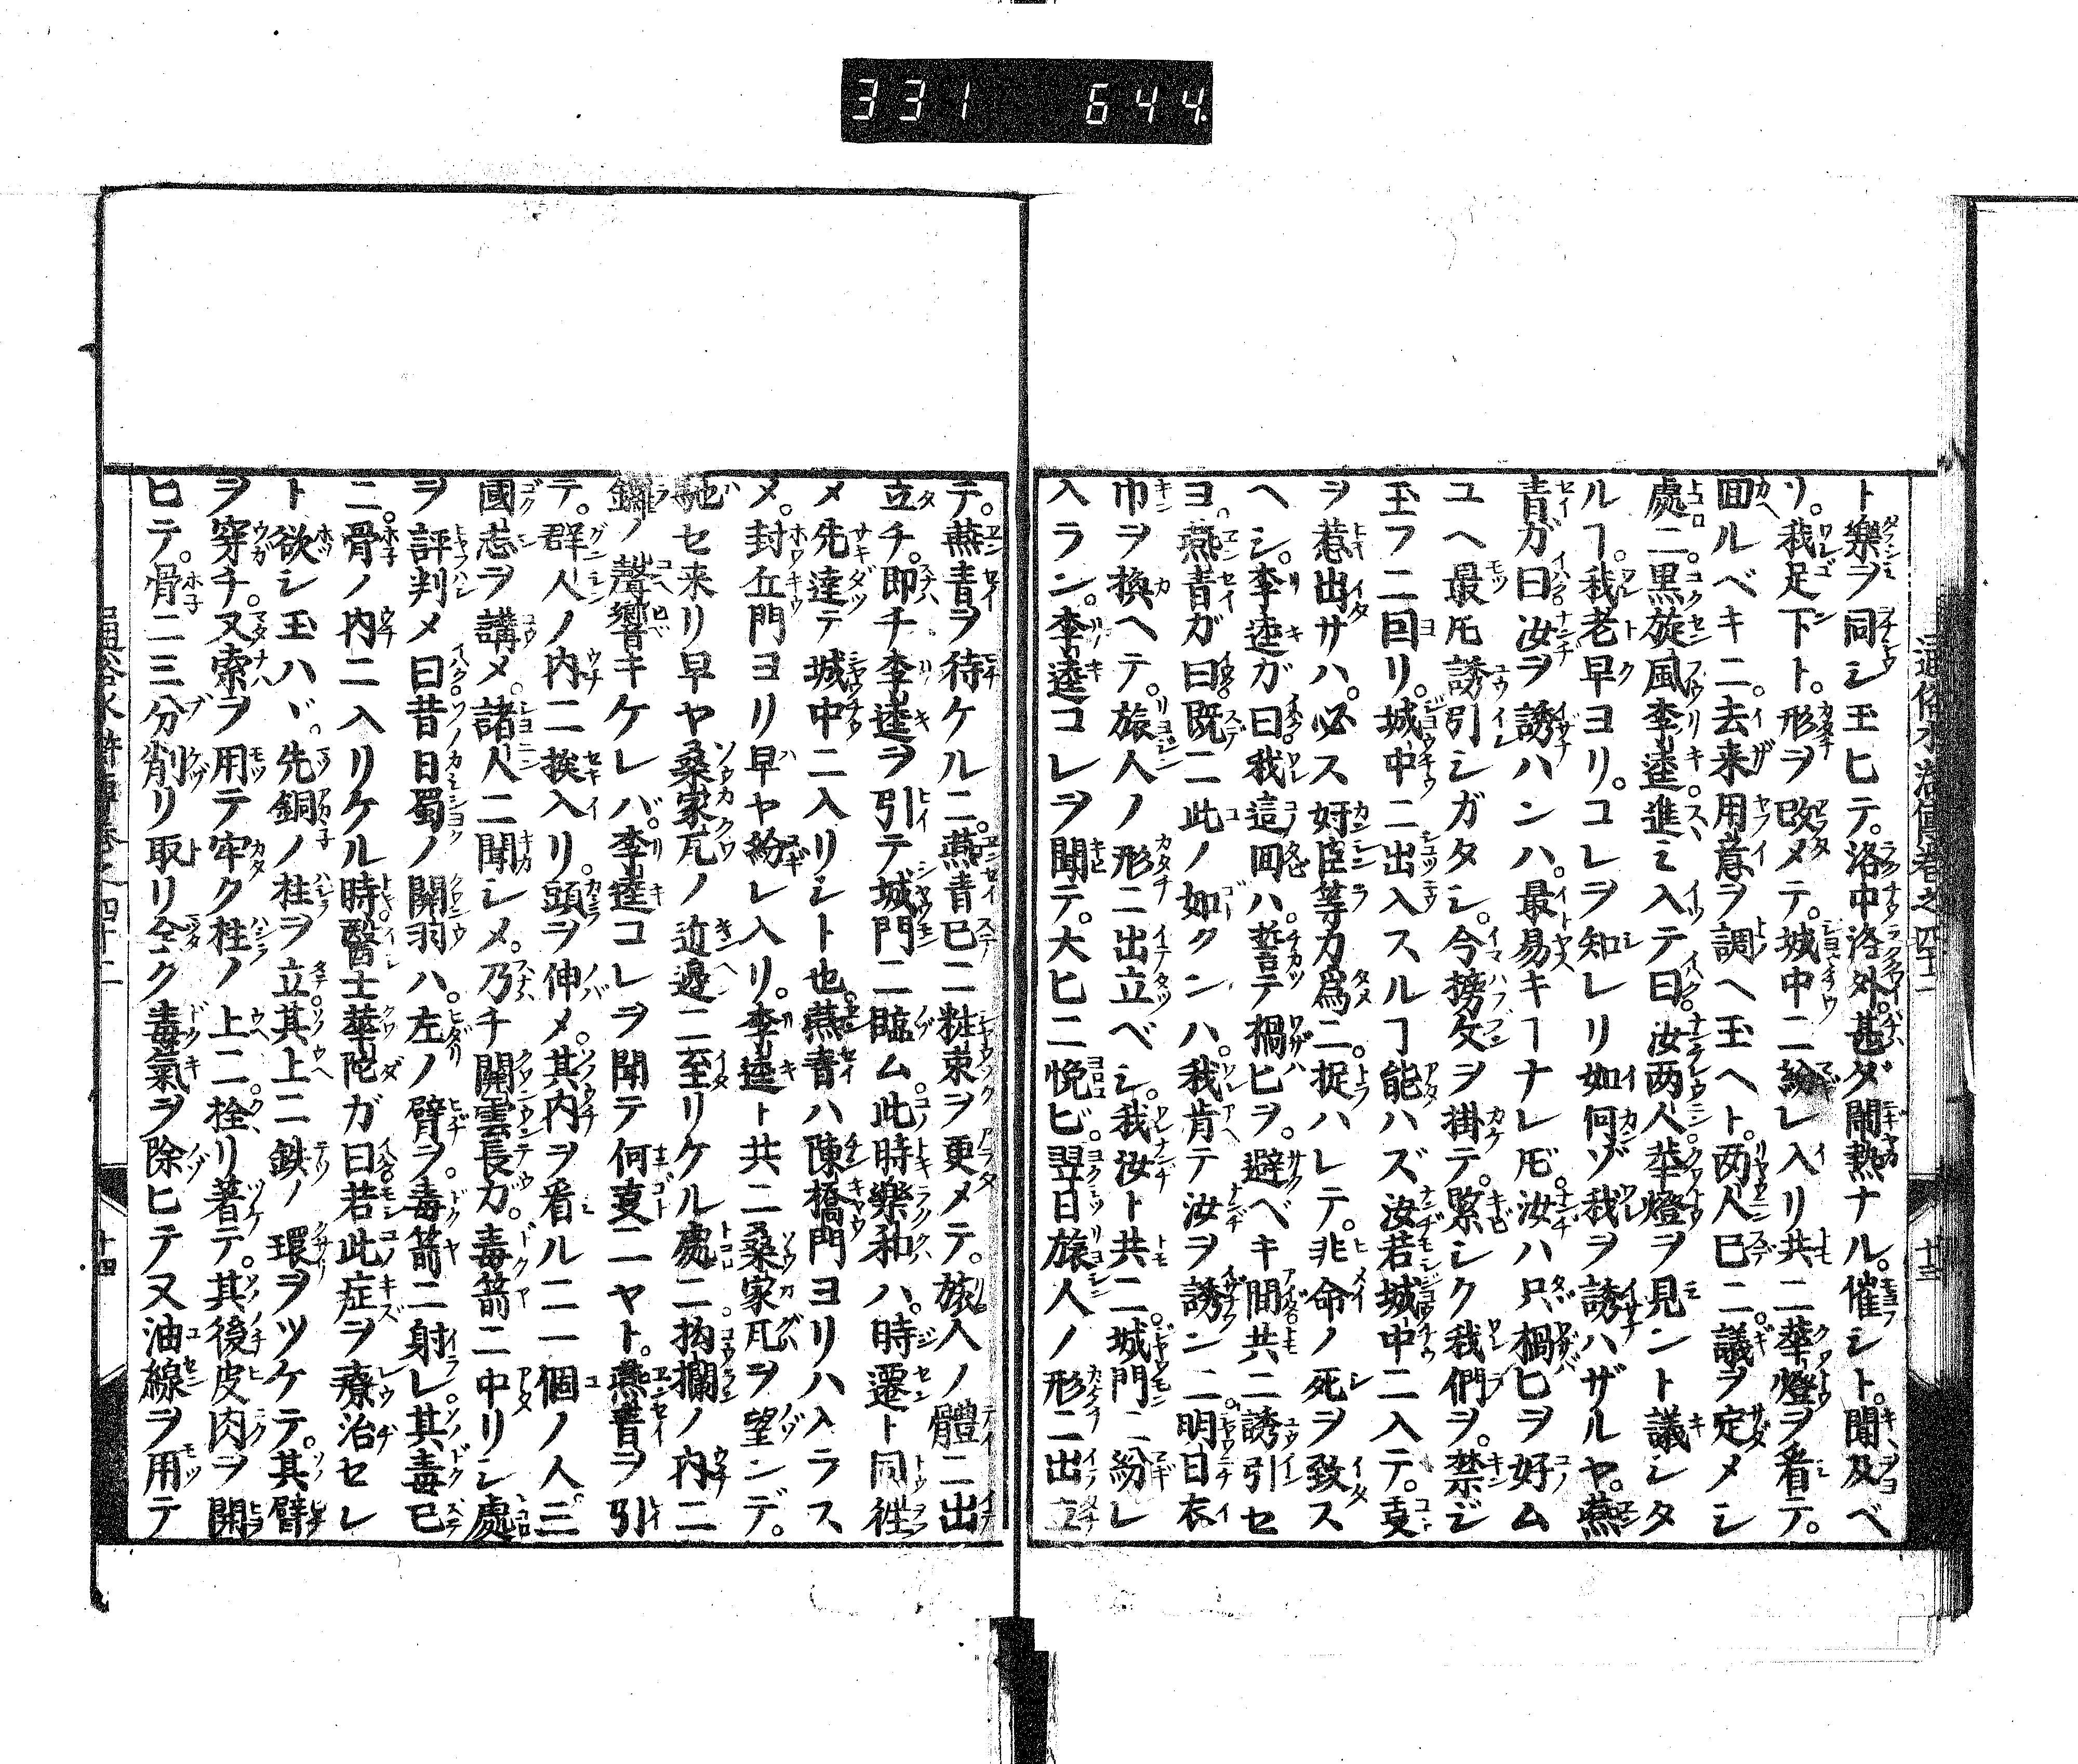 331 644
通俗水滸傳卷之四十二 十三
ト樂ヲ同シ玉ヒテ。洛中洛外。甚ダ鬧熱ナル。催シト。聞及ベ
リ。我足下ト。形ヲ改メテ。城中ニ紛レ入リ共ニ華燈ヲ看テ。
囬ルベキニ。去来用意ヲ調ヘ玉ヘト。两人巳ニ。議ヲ定メシ
處ニ。黒旋風李逵進ミ入テ曰。汝两人華燈ヲ見ント議シタ
ルヿ。我老早ヨリ。コレヲ知レリ如何ゾ我ヲ誘ハザルヤ。燕
青ガ曰汝ヲ誘ハンハ。最易キヿナレ𪜈。汝ハ只禍ヒヲ好ム
ユヘ最𪜈誘引シガタシ。今搒文ヲ掛テ。緊シク我們ヲ。禁ジ
玉フニ回リ。城中ニ出入スルヿ能ハズ汝若城中ニ入テ。叓
ヲ惹出サハ。必ス奸臣等カ爲ニ。捉ハレテ。非命ノ死ヲ致ス
ヘシ。李逵ガ曰我這囬ハ。誓テ禍ヒヲ。避ベキ間共ニ誘引セ
ヨ。燕青ガ曰既ニ此ノ如クンハ。我肯テ汝ヲ誘ンニ。明日衣
巾ヲ換ヘテ。旅人ノ形ニ出立ベシ。我汝ト共ニ。城門ニ紛レ
入ラン。李逵コレヲ聞テ。大ヒニ悦ビ。翌日旅人ノ形ニ出立
テ。燕青ヲ待ケルニ。燕青巳ニ粧束ヲ更メテ。旅人ノ體ニ出
立チ。即チ李逵ヲ引テ城門ニ臨ム。此時樂和ハ。時遷ト同徃
メ先達テ城中ニ入リシト也。燕青ハ陳橋門ヨリハ入ラス
メ。封丘門ヨリ早ヤ紛レ入リ。李逵ト共ニ桑家瓦ヲ望ンデ。
馳セ来リ早ヤ桑家瓦ノ近邊ニ至リケル處ニ。拘欄ノ内ニ
鑼ノ聲響キケレバ。李逵コレヲ聞テ何叓ニヤト。燕青ヲ引
テ。群人ノ内ニ挨入リ。頭ヲ伸メ。其内ヲ看ルニ一個ノ人。三
國志ヲ講メ。諸人ニ聞シメ。乃チ關雲長ガ。毒箭ニ中リシ處
ヲ評判メ曰昔日蜀ノ關羽ハ。左ノ臂ヲ。毒箭ニ射レ。其毒已
ニ。骨ノ内ニ入リケル時。醫士華陀ガ曰若此症ヲ療治セレ
ト欲シ玉ハヾ。先銅ノ柱ヲ立其上ニ鉄ノ環ヲツケテ。其臂
ヲ穿チ。又索ヲ用テ牢ク柱ノ上ニ栓リ著テ。其後皮肉ヲ開
ヒテ。骨二三分削リ取リ全ク毒氣ヲ除ヒテ又油線ヲ用テ
通俗水滸傳卷之四十二 十四